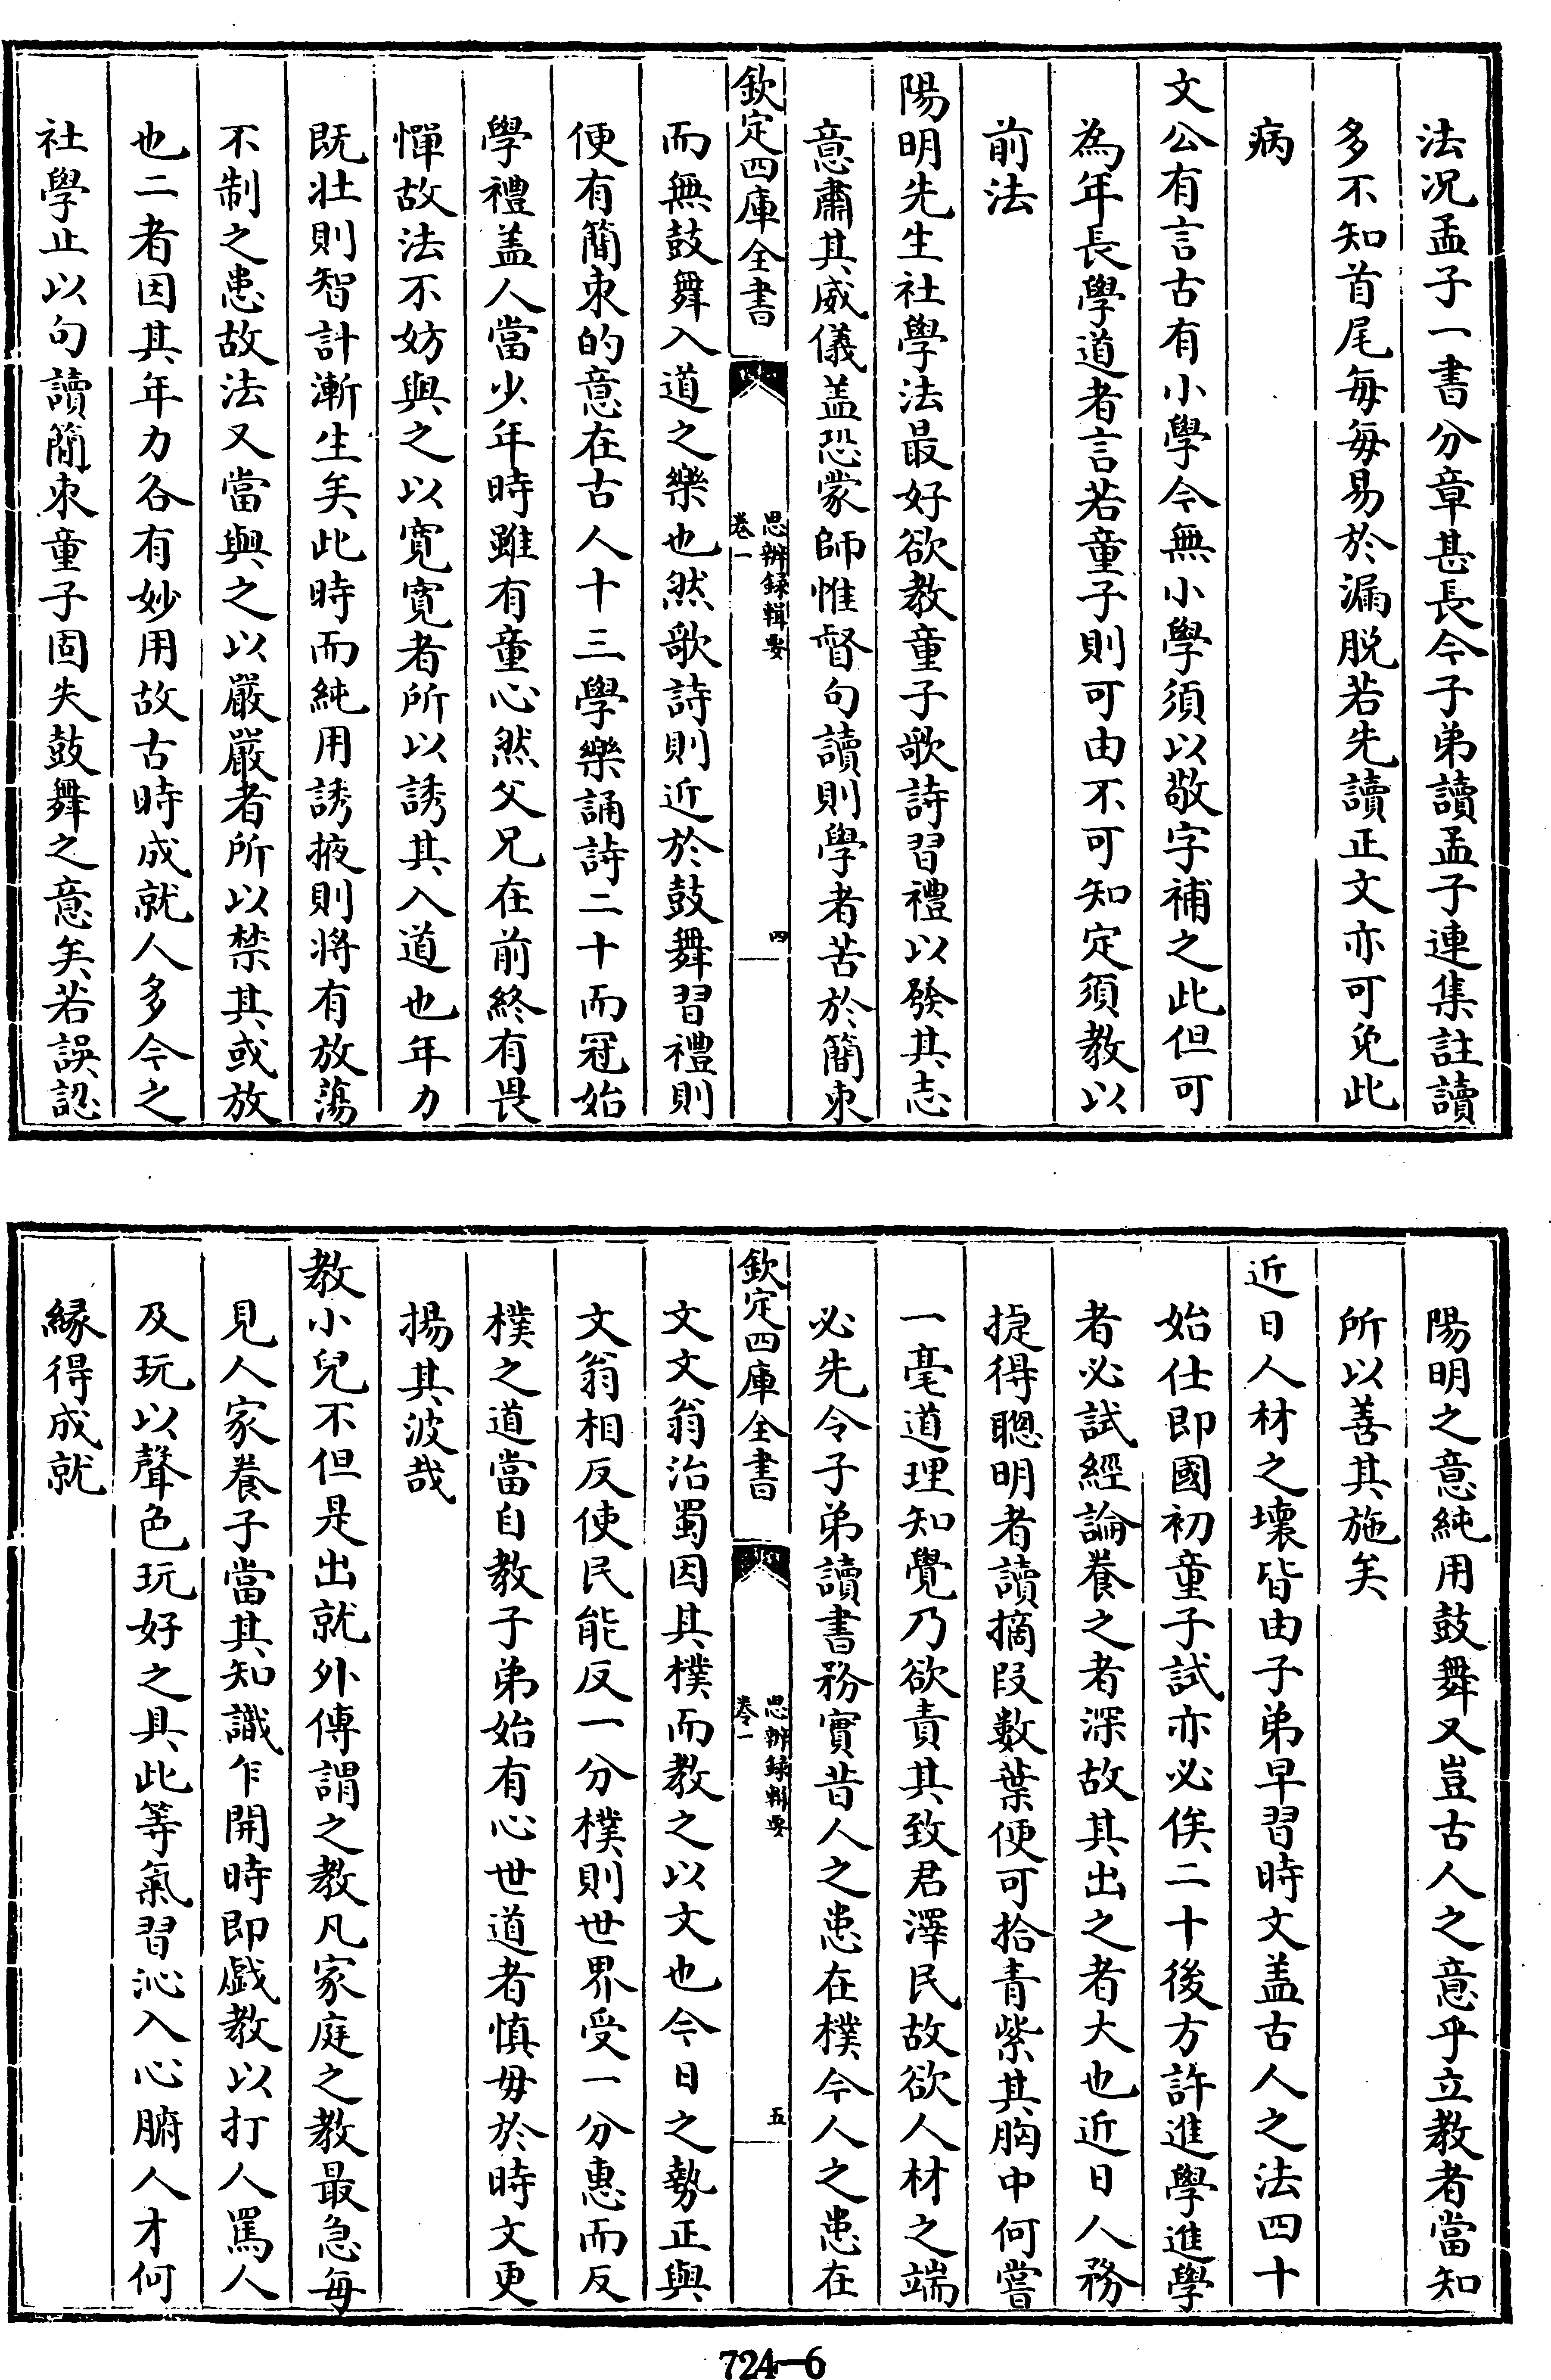 法況孟子一書分章甚長今子弟讀孟子連集註讀
多不知首尾每每易於漏脱若先讀正文亦可免此
病
文公有言古有小學今無小學須以敬字補之此但可
為年長學道者言若童子則可由不可知定須教以
前法
陽明先生社學法最好欲教童子歌詩習禮以發其志
意肅其威儀盖恐蒙師惟督句讀則學者苦於簡束
欽定四庫全書
思辨録輯要
卷一
四
而無鼓舞入道之樂也然歌詩則近於鼓舞習禮則
便有簡束的意在古人十三學樂誦詩二十而冠始
學禮盖人當少年時雖有童心然父兄在前終有畏
憚故法不妨與之以寛寛者所以誘其入道也年力
既壮則智計漸生矣此時而純用誘掖則将有放蕩
不制之患故法又當與之以嚴嚴者所以禁其或放
也二者因其年力各有妙用故古時成就人多今之
社學止以句讀簡束童子固失鼓舞之意矣若誤認
陽明之意純用鼓舞又豈古人之意乎立教者當知
所以善其施矣
近日人材之壞皆由子弟早習時文盖古人之法四十
始仕即國初童子試亦必俟二十後方許進學進學
者必試經論養之者深故其出之者大也近日人務
捷得聰明者讀摘段數葉便可拾青紫其胸中何嘗
一毫道理知覺乃欲責其致君澤民故欲人材之端
必先令子弟讀書務實昔人之患在樸今人之患在
欽定四庫全書
思辨録輯要
卷一
五
文文翁治蜀因其樸而教之以文也今日之勢正與
文翁相反使民能反一分樸則世界受一分惠而反
樸之道當自教子弟始有心世道者慎毋於時文更
揚其波哉
教小兒不但是出就外傅謂之教凡家庭之教最急每
見人家養子當其知識乍開時即戯教以打人罵人
及玩以聲色玩好之具此等氣習沁入心腑人才何
緣得成就
724—6